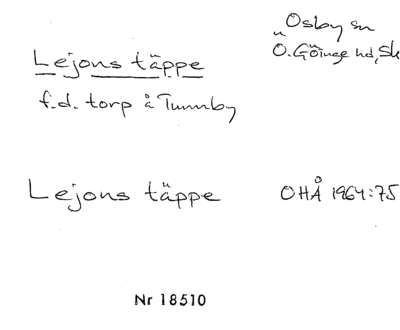 Osby sn
Ö. Göinge hd, Sk
Lejons täppe
f.d. torp å Tunnby
Lejons täppe
OHÅ 1964:75
Nr 18510